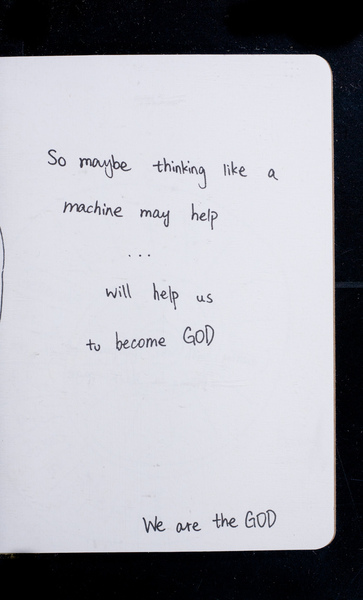 So maybe thinking like a
machine may help
...
will help us
to become GOD
We are the GOD